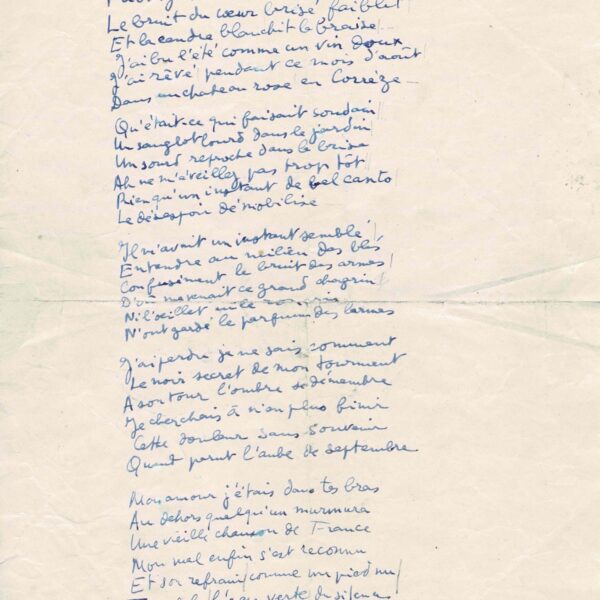 Le bruit du cœur brisé faiblit
Et la cendre blanchit la braise
J'ai bu l'été comme un vin doux
J'ai rêvé pendant ce mois d'août
Dans un chateau rose en Corrèze
Qu'était-ce qui faisait soudain
Un sanglot lourd dans le jardin
Un sourd reproche dans la brise
Ah ne m'éveillez pas trop tôt
Rien qu'un instant de bel canto
Le désespoir démobilise
Il m'avait un instant semblé
Entendre au milieu des blés
Confusément le bruit des armes
D'où me venait ce grand chagrin
Ni l'œillet ni le romarin
N'ont gardé le parfum des larmes
J'ai perdu je ne sais comment
Le noir secret de mon tourment
A son tour l'ombre se démembre
Je cherchais à n'en plus finir
Cette douleur sans souvenir
Quand parut l'aube de septembre
Mon amour j'étais dans tes bras
Au dehors quelqu'un murmura
Une vieille chanson de France
Mon mal enfin s'est reconnu
Et son refrain comme un pied nu
l'eau verte du silence